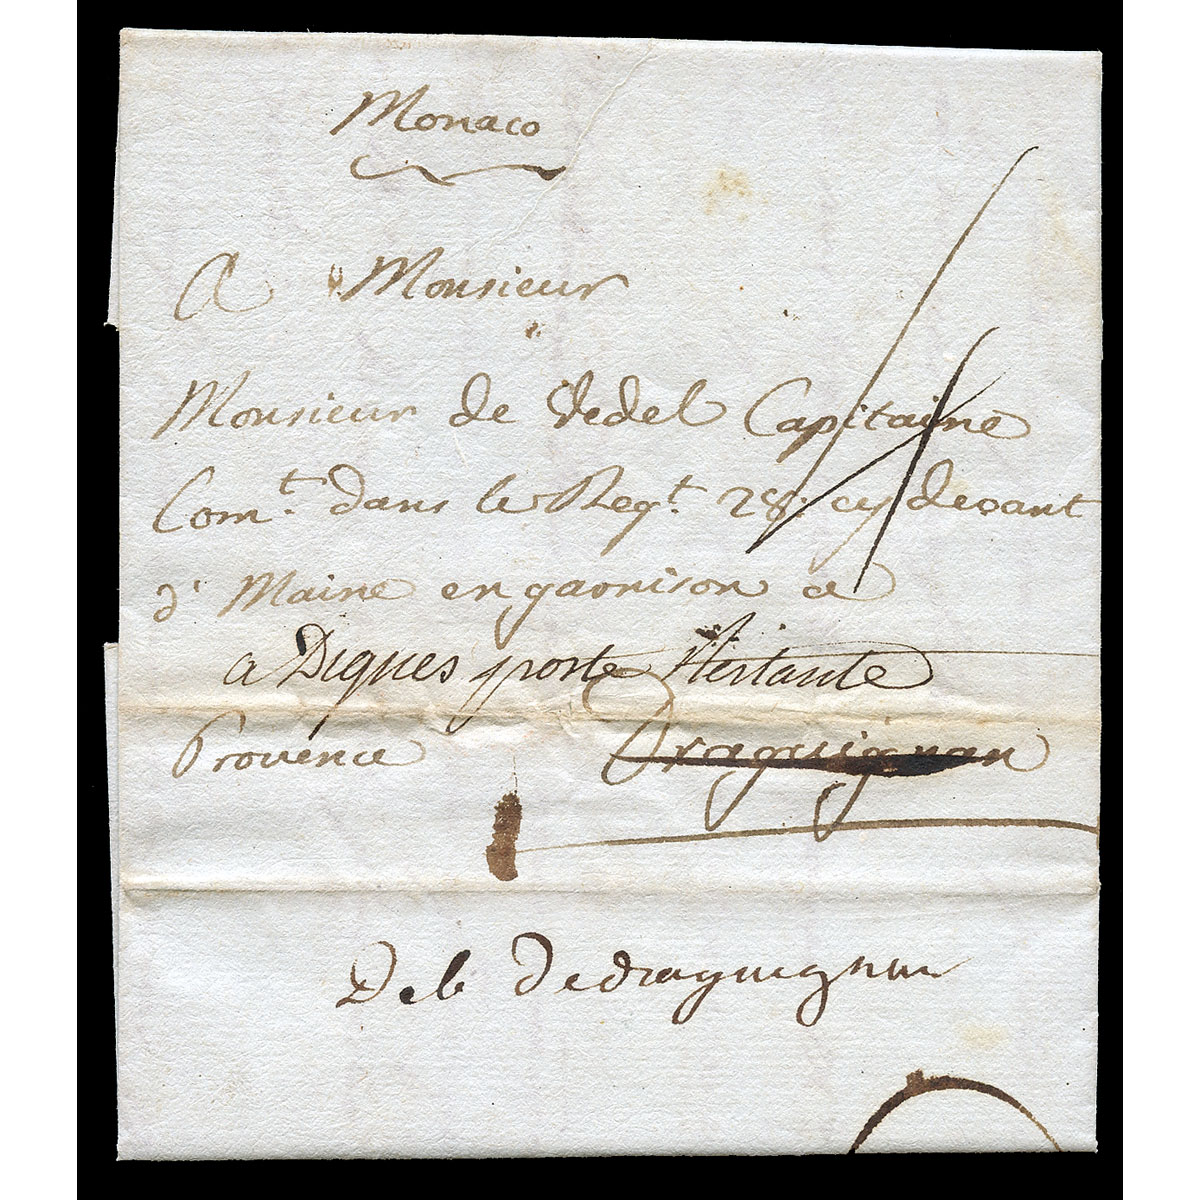 Monaco
A Monsieur
Monsieur de Vedel Capitaine
Com.t dans le Reg.t 28. cy devant
d' Maine en garnison a
a Dignes poste Restante
Provence Draguignan
Deb De draguignan